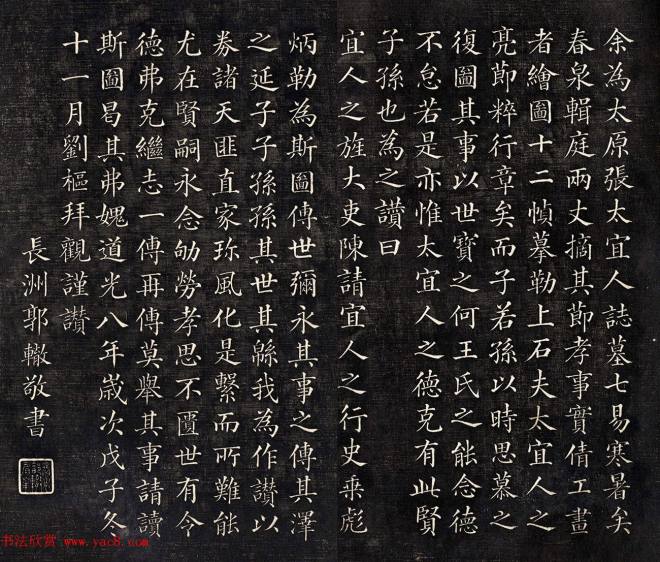 余為太原張太宜人誌墓七易寒暑矣
春泉輯庭兩丈摘其節孝事實倩工畫
者繪圖十二幀摹勒上石夫太宜人之
亮節粹行章矣而子若孫以時思慕之
復圖其事以世寶之何王氏之能念德
不怠若是亦惟太宜人之德克有此賢
子孫也為之讚曰
宜人之旌大吏陳請宜人之行史乘彪
炳勒為斯圖傳世彌永其事之傳其澤
之延子子孫孫其世其緜我為作讚以
券諸天匪直家珎風化是繫而所難能
尤在賢嗣永念劬勞孝思不匱世有今
德弗克繼志一傳再傳莫舉其事請讀
斯圖曷其弗媿道光八年歲次戊子冬
十一月劉樞拜觀謹讚
長洲郭轍敬書
书法欣赏 www.yac8.com